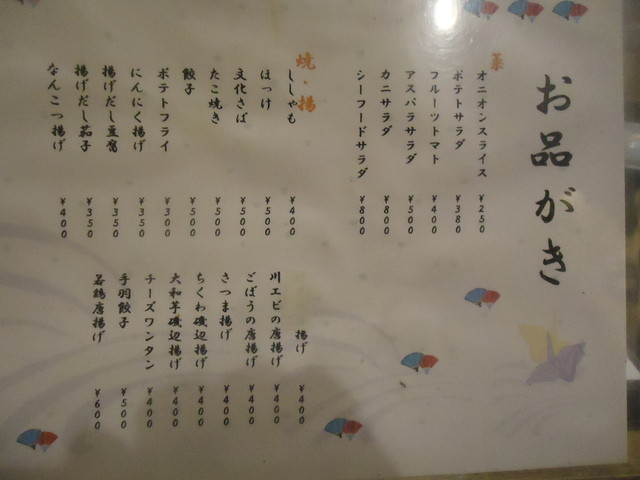 お品がき
菜
オニオンスライス ¥250
ポテトサラダ ¥380
フルーツトマト ¥400
アスパラサラダ ¥500
カニサラダ ¥800
シーフードサラダ ¥800
焼・揚
ししゃも ¥400
ほっけ ¥500
文化さば ¥500
たこ焼き ¥500
餃子 ¥500
ポテトフライ ¥300
にんにく揚げ ¥350
揚げだし豆腐 ¥350
揚げだし茄子 ¥350
なんこつ揚げ ¥400
揚げ ¥400
川エビの唐揚げ ¥400
ごぼうの唐揚げ ¥400
さつま揚げ ¥400
ちくわ磯辺揚げ ¥400
大和芋磯辺揚げ ¥400
チーズワンタン ¥400
手羽餃子 ¥500
若鶏唐揚げ ¥600